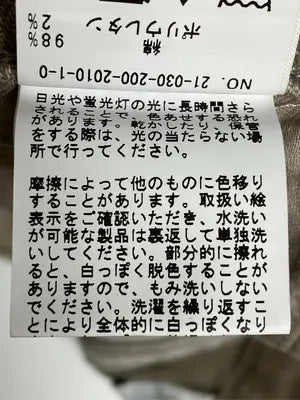 綿 98%
ポリウレタン 2%
NO. 21-030-200-2010-1-0
日光や蛍光灯の光に長時間さら
されることで、色あせする恐れ
があります。乾かしたり、保管
をする際は、光の当たらない場
所で行ってください。
摩擦によって他のものに色移り
することがあります。取扱い絵
表示をご確認いただき、水洗い
が可能な製品は裏返して単独洗
いしてください。部分的に擦れ
ると、白っぽく脱色することが
ありますので、もみ洗いしない
でください。洗濯を繰り返すこ
とにより全体的に白っぽくなり